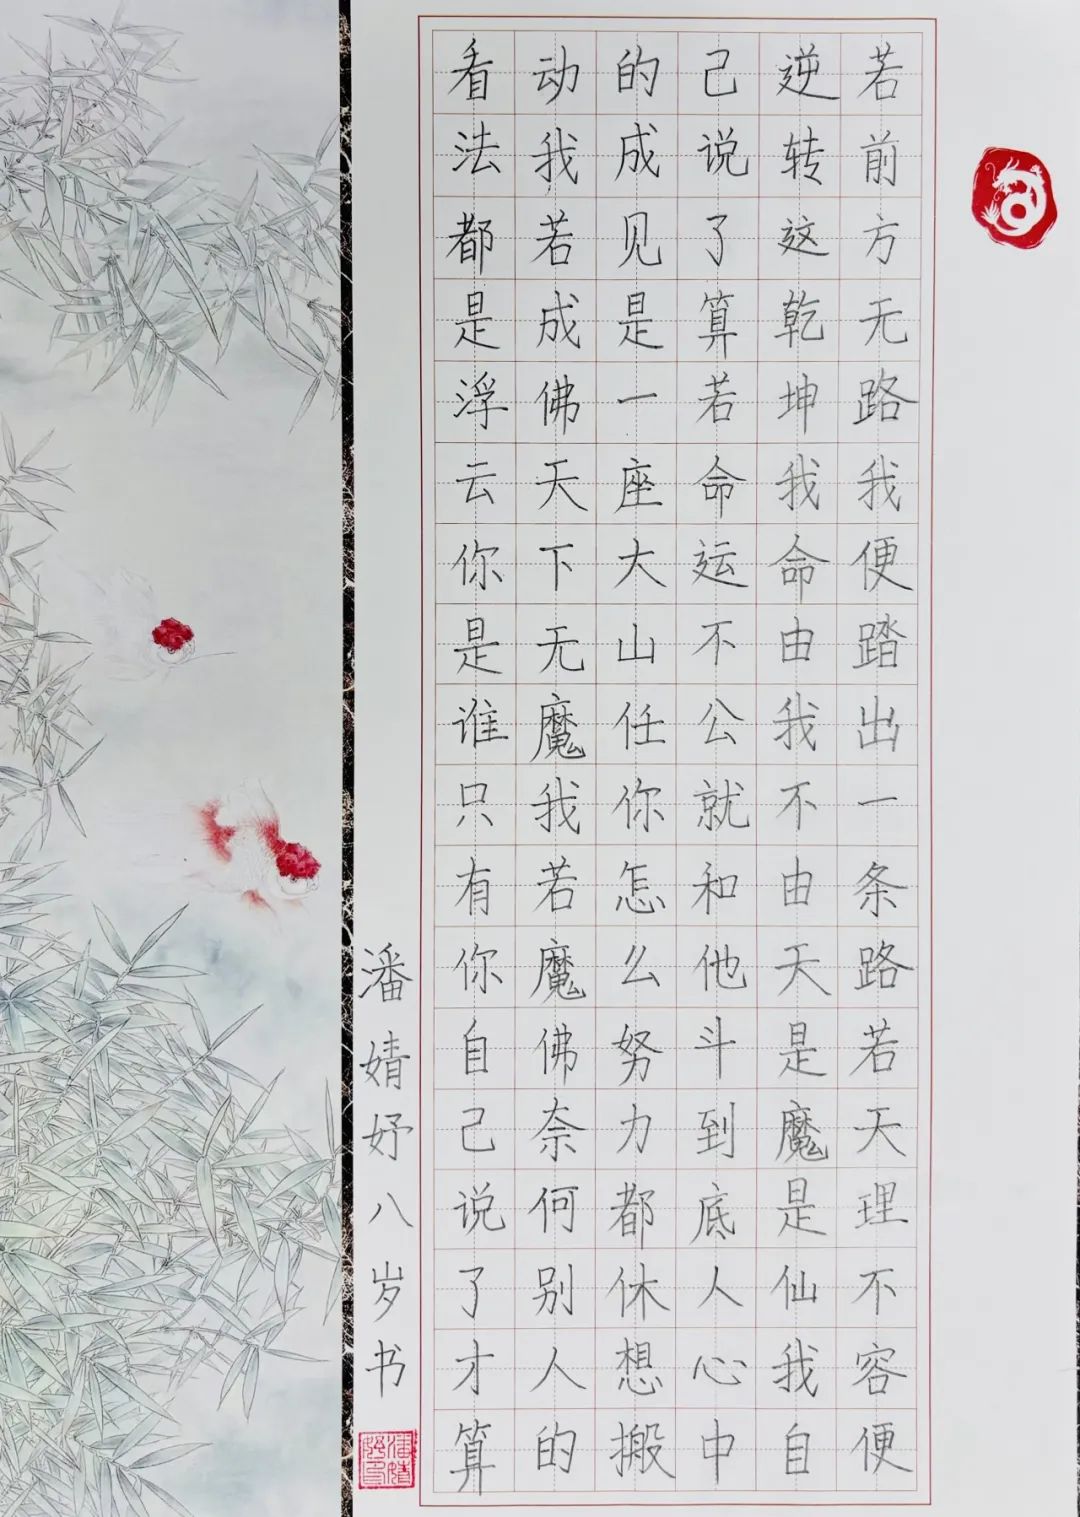 若前方无路我便踏出一条路若天理不容便
逆转这乾坤我命由我不由天是魔是仙我自
己说了算若命运不公就和他斗到底人心中
的成见是一座大山任你怎么努力都休想搬
动我若成佛天下无魔我若魔佛奈何别人的
看法都是浮云你是谁只有你自己说了才算
潘婧妤八岁书